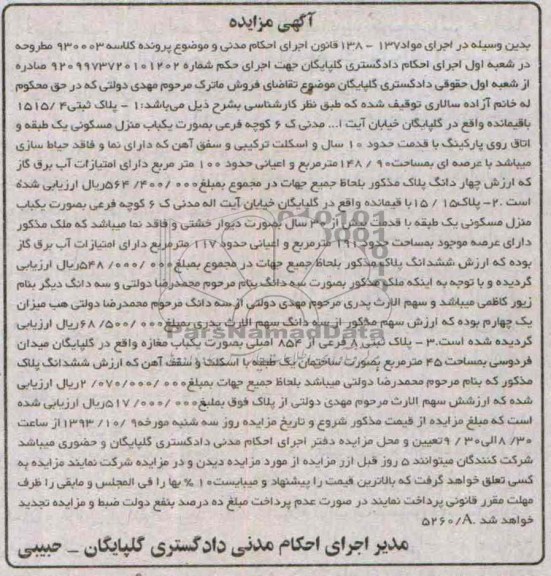 آگهی مزایده
بدین وسیله در اجرای مواد۱۳۷ - ۱۳۸ قانون اجرای احکام مدنی و موضوع پرونده کلاسه ۹۳۰۰۰۳ مطروحه
در شعبه اول اجرای احکام دادگستری گلپایگان جهت اجرای حکم شماره ۹۲۰۹۹۷۳۷۲۰۱۰۱۲۰۲ صادره
از شعبه اول حقوقی دادگستری گلپایگان موضوع تقاضای فروش ماترک مرحوم مهدی دولتی که در حق محکوم
له خانم آزاده سالاری توقیف شده که طبق نظر کارشناسی بشرح ذیل می‌باشد:۱ - پلاک ثبتی۴ /۱۵۱۵
باقیمانده واقع در گلپایگان خیابان آیت ا... مدنی ک ۶ کوچه فرعی بصورت یکباب منزل مسکونی یک طبقه و
اتاق روی پارکینگ با قدمت حدود ۱۰ سال و اسکلت ترکیبی و سقف آهن که دارای نما و فاقد حیاط سازی
میباشد با عرصه ای بمساحت۹۰ / ۱۴۸مترمربع و اعیانی حدود ۱۰۰ متر مربع دارای امتیازات آب برق گاز
که ارزش چهار دانگ پلاک مذکور بلحاظ جمیع جهات در مجموع بمبلغ۰۰۰ /۴۰۰/ ۵۶۴ریال ارزیابی شده
است .۲- پلاک۱۵ / ۱۵با قیمانده واقع در گلپایگان خیابان آیت اله مدنی ک ۶ کوچه فرعی بصورت یکباب
منزل مسکونی یک طبقه با قدمت حدود ۳۰ سال بصورت دیوار خشتی و فاقد نما میباشد که ملک مذکور
دارای عرصه موجود بمساحت حدود ۱۹۱ مترمربع و اعیانی حدود ۱۱۷ مترمربع دارای امتیازات آب برق گاز
بوده که ارزش ششدانگ پلاک مذکور بلحاظ جمیع جهات در مجموع بمبلغ۰۰۰ /۰۰۰/ ۵۴۸ریال ارزیابی
گردیده و با توجه به اینکه ملک مذکور بصورت سه دانگ بنام مرحوم محمدرضا دولتی و سه دانگ دیگر بنام
زیور کاظمی میباشد و سهم الارث پدری مرحوم مهدی دولتی از سه دانگ مرحوم محمدرضا دولتی هب میزان
یک چهارم بوده که ارزش سهم مذکور از سه دانگ سهم الارث پدری بمبلغ۰۰۰ /۵۰۰/ ۶۸ریال ارزیابی
گردیده شده است.۳ - پلاک ثبتی ۸ فرعی از ۸۵۴ اصلی بصورت یکباب مغازه واقع در گلپایگان میدان
فردوسی بمساحت ۴۵ مترمربع بصورت ساختمان یک طبقه با اسکلت و سقف آهن که ارزش ششدانگ پلاک
مذکور که بنام مرحوم محمدرضا دولتی میباشد بلحاظ جمیع جهات بمبلغ۰۰۰ /۰۰۰ /۰۷۰/ ۲ریال ارزیابی
شده که ارزشش سهم الارث مرحوم مهدی دولتی از پلاک فوق بمبلغ۰۰۰ /۰۰۰/ ۵۱۷ریال ارزیابی شده
است که مبلغ مزایده از قیمت مذکور شروع و تاریخ مزایده روز سه شنبه مورخه۹ /۱۰/ ۱۳۹۳از ساعت
۳۰/ ۸الی۳۰ / ۹تعیین و محل مزایده دفتر اجرای احکام مدنی دادگستری گلپایگان و حضوری میباشد
شرکت کنندگان میتوانند ۵ روز قبل ازر مزایده از مورد مزایده دیدن و در مزایده شرکت نمایند مزایده به
کسی تعلق خواهد گرفت که بالاترین قیمت را پیشنهاد و میبایست۱۰ % بها را فی المجلس و مابقی را ظرف
مهلت مقرر قانونی پرداخت نمایند در صورت عدم پرداخت مبلغ ده درصد بنفع دولت ضبط و مزایده تجدید
خواهد شد .۵۲۶۰/A
مدیر اجرای احکام مدنی دادگستری گلپایگان – حبیبی
ParsNamadData